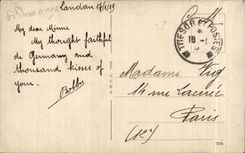 Allemagne
Landau 17/1/19
My dear Minne
My thought faithful
de Germany and
thousand kisses of
yours.
Bobby
TRESOR ET POSTES
18
Madame Huy
14 rue
Paris
(1er)